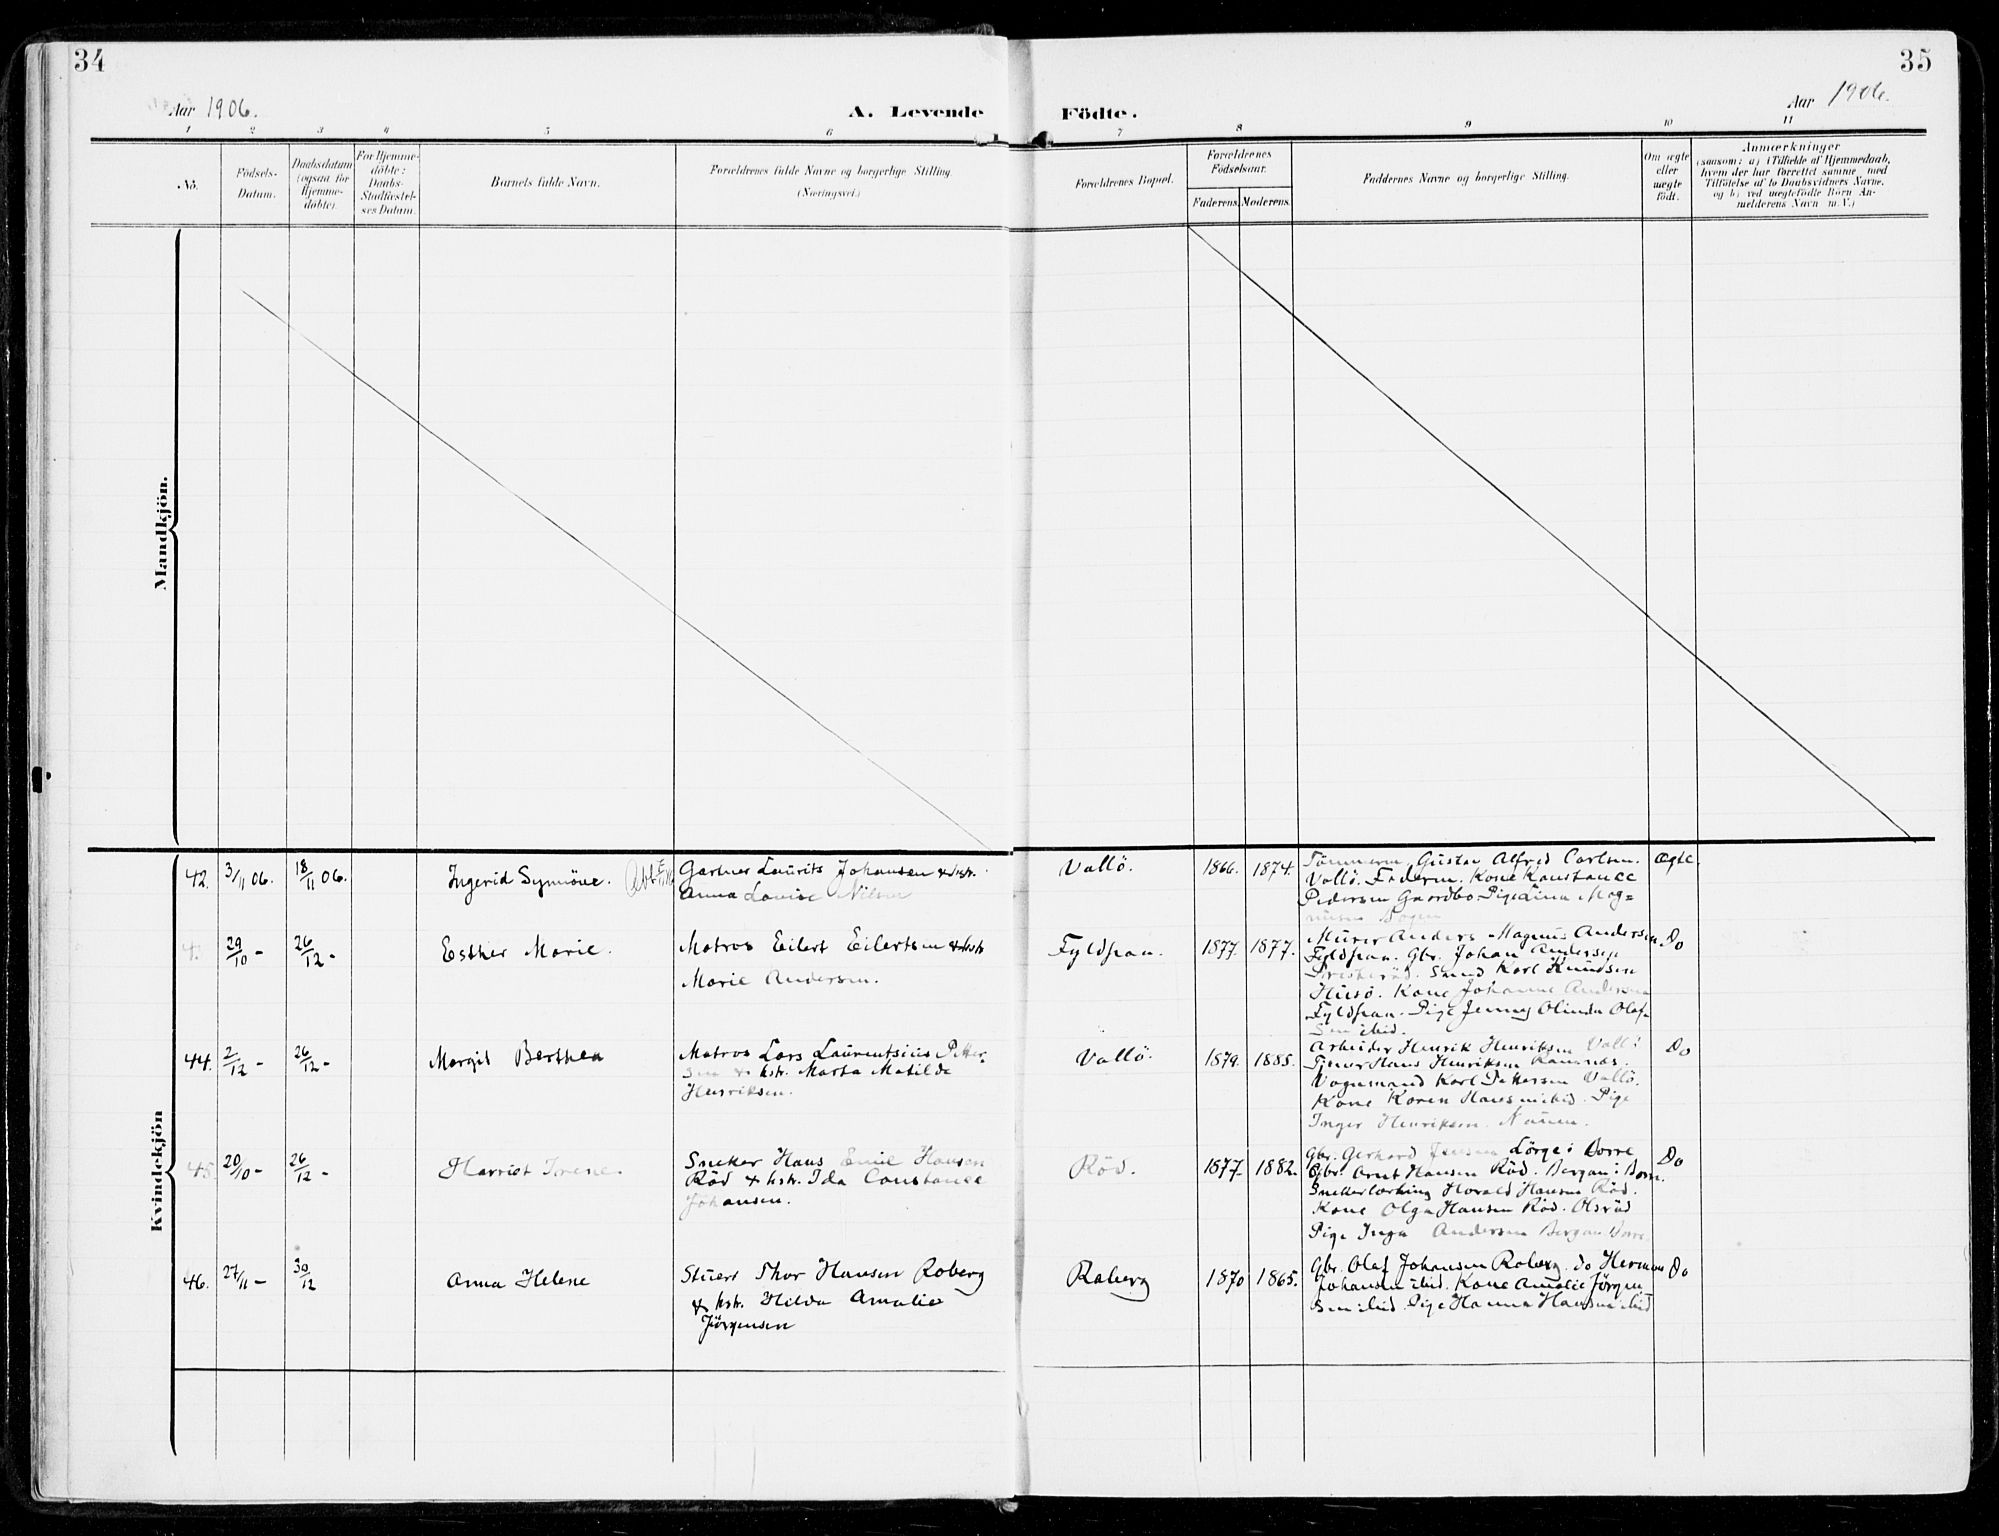 34
35
Aar 1906.
A. Levende
Födte.
Aar 1906.
1 2 3 4 5 6 7 8 9 10 11
No.
Födsels-
Datum.
Daabsdatum
(ogsaa for
Hjemme-
døbte).
For Hjemme-
döbte:
Daabs-
Stadfæstel-
ses Datum.
Barnets fulde Navn.
Forældrenes fulde Navne og borgerlige Stilling.
(Næringsvei.)
Forældrenes Bopæl.
Forældrenes
Födselsaar.
Faderens. Moderens.
Faddernes Navne og borgerlige Stilling.
Om ægte
eller
uægte
født.
Anmærkninger
(saasom: a) i Tilfælde af Hjemmedaab,
hvem der har forrettet samme, med
Tilföielse af to Daabsvidners Navne,
og b) ved uægtefödte Börn An-
melderens Navn m.V.)
Mandkjön.
Kvindekjön
42. 3/11 06. 18/11 06. Ingerid Synnöve.
Gartner Laurits Johansen & hstr.
Anna Lovise Nilsen
Vallö. 1866. 1874.
Tömmerm. Gustav Alfred Carlsen.
Vallö. Faderen. Kone Konstance
Pedersen Gaardbo. Pige Lina Mag-
nusen
ægte.
4. 29/10 - 26/12 - Esther Marie.
Matros Eilert Eilertsen & hstr
Marie Andersen.
Fyldpaa. 1877. 1877.
Murer Anders Magnus Andersen
Fyldpaa. Gbr. Johan Andersen
Karl Knudsen
Husö. Kone Johanne Andersen
Fyldpaa. Pige Jenny Olinda Olaf-
sen ibid.
Do
44. 2/12 - 26/12 - Margit Berthea
Matros Lars Laurentsius Petter-
sen & hstr. Marta Matilde
Henriksen.
Vallö. 1879. 1885.
Arbeider Henrik Henriksen Vallö
Tjener Hans Henriksen Ramnæs.
Vognmand Karl Pettersen Vallö.
Kone Karen Hansen ibid. Pige
Inger Henriksen.
Do
45. 20/10 - 26/12 - Harriet Irene.
Snekker Hans Emil Hansen
Röd & hstr. Ida Constance
Johansen.
Röd. 1877. 1882.
Gbr. Gerhard Jensen Lörge i Borre
Gbr. Arnt Hansen Röd. Bergan i Borre.
Snekkerlærling Harald Hansen Röd.
Kone Olga Hansen Röd. Olsröd
Pige Inga Andersen Bergan Borre
Do
46. 27/11 - 30/12 Anna Helene
Stuert Thor Hansen Roberg
& hstr. Hilda Amalie
Jörgensen
Roberg 1870 1865.
Gbr. Olaf Johansen Roberg. do Herman
Johansen ibid. Kone Amalie Jörgen-
sen ibid. Pige Hanna Hansen ibid
Do